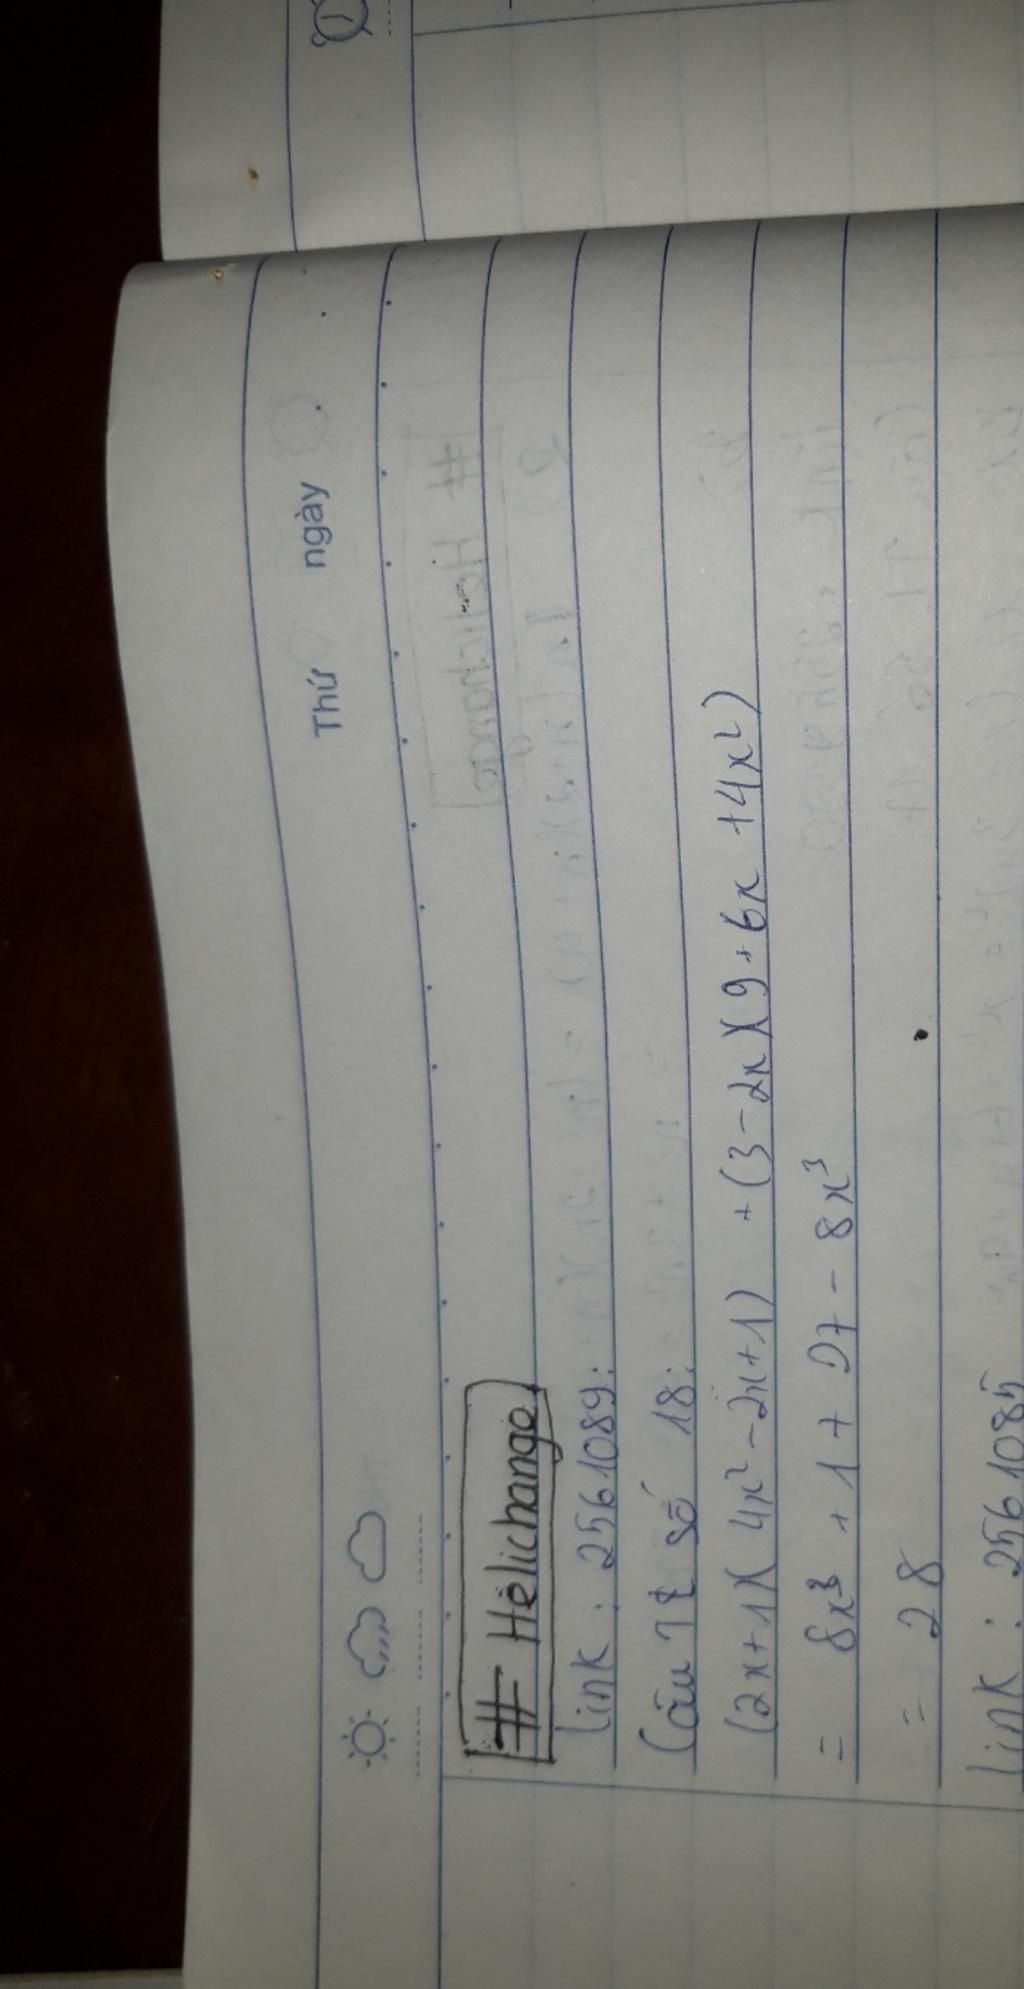 Thứ ngày
# Helichange
link : 2561089:
Câu số 18:
(2x+1)(4x²-2x+1) + (3-2x)(9+6x+4x²)
= 8x³ + 1 + 27 - 8x³
= 28
link : 2561085